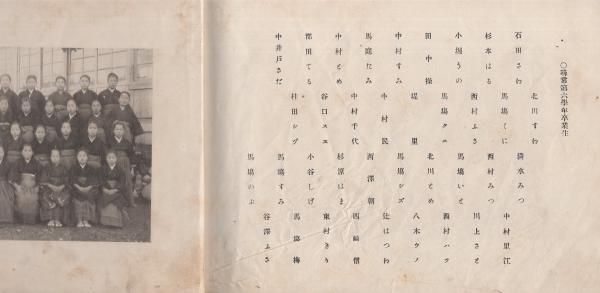 ○尋常第六學年卒業生
石田さわ
北川すわ
清水みつ
中村里江
杉本はる
馬塲くに
西村みつ
川上さと
小堀りの
西村ふさ
馬塲いと
西村ハツ
田中操
馬塲クエ
北川とめ
八木ウノ
中村すみ
堤里
馬塲シズ
辻はつわ
馬塲たみ
中村民
西澤朝
中村とめ
中村千代
杉原はま
東村きり
都田てる
谷口スエ
小谷しげ
馬塲梅
中井戸さだ
桂田シゲ
馬塲すみ
谷澤ふさ
馬塲のぶ